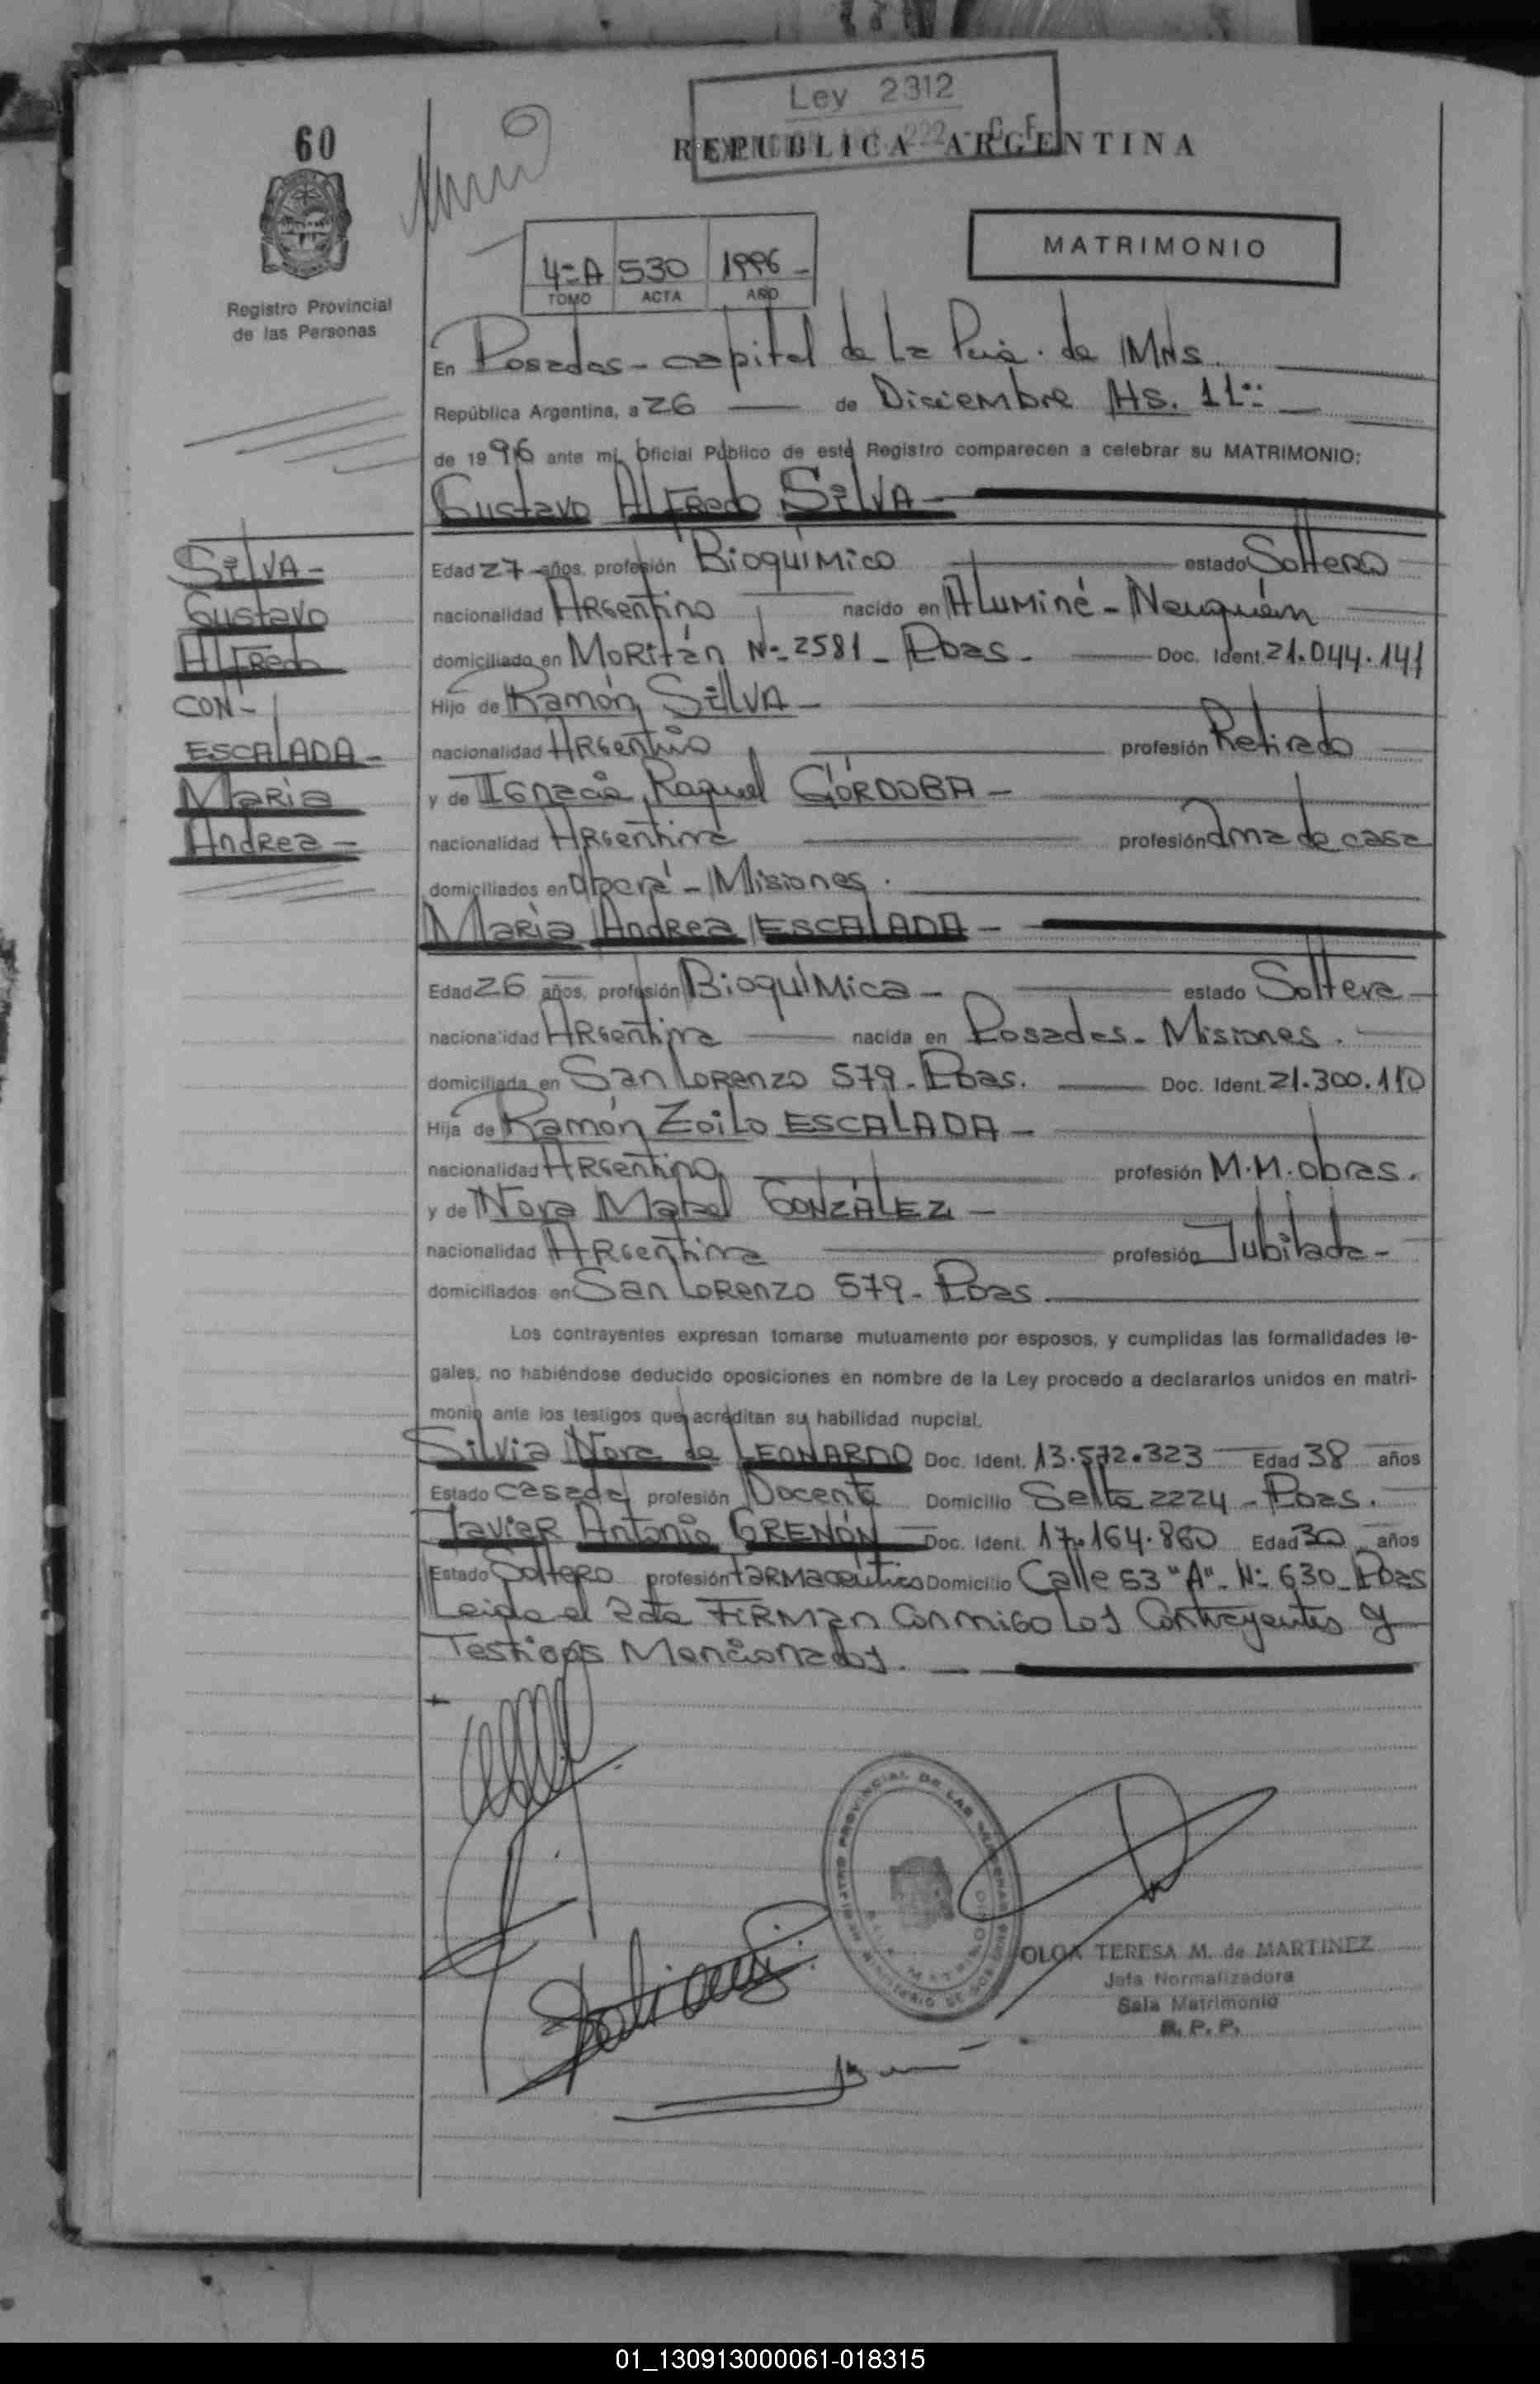 Ley 2312
60
REPUBLICA ARGENTINA
MATRIMONIO
4=A 530 1996 -
TOMO ACTA AÑO
Registro Provincial
de las Personas
En Posadas - capital de La Pcia. de MNS.
República Argentina, a 26 de Diciembre Hs. 11:
de 1996 ante mi, Oficial Público de este Registro comparecen a celebrar su MATRIMONIO:
Gustavo Alfredo SILVA -
SILVA -
Gustavo
Alfredo
CON -
ESCALADA -
Maria
Andrea -
Edad 27 años, profesión Bioquímico estado Soltero
nacionalidad Argentino nacido en Aluminé - Neuquén
domiciliado en Moritán N= 2581 - Pdas. Doc. Ident. 21.044.141
Hijo de Ramón SILVA -
nacionalidad Argentino profesión Retirado
y de Ignacia Raquel CÓRDOBA -
nacionalidad Argentina profesión Ama de casa
domiciliados en Oberá - Misiones.
Maria Andrea ESCALADA -
Edad 26 años, profesión Bioquímica - estado Soltera
nacionalidad Argentina nacida en Posadas - Misiones.
domiciliada en San Lorenzo 579 - Pdas. Doc. Ident. 21.300.110
Hija de Ramón Zoilo ESCALADA -
nacionalidad Argentino profesión M.M. obras.
y de Nora Mabel GONZÁLEZ -
nacionalidad Argentina profesión Jubilada -
domiciliados en San Lorenzo 579 - Pdas.
Los contrayentes expresan tomarse mutuamente por esposos, y cumplidas las formalidades le-
gales, no habiéndose deducido oposiciones en nombre de la Ley procedo a declararlos unidos en matri-
monio ante los testigos que acreditan su habilidad nupcial.
Silvia Nora de LEONARDO Doc. Ident. 13.572.323 Edad 38 años
Estado casada profesión Docente Domicilio Salta 2224 - Pdas.
Javier Antonio GRENÓN Doc. Ident. 17.164.860 Edad 30 años
Estado Soltero profesión Farmacéutico Domicilio Calle 53 "A" - N= 630 - Pdas
Leida el acta FIRMAN conmigo los Contrayentes y
Testigos Mencionados.
REGISTRO PROVINCIAL DE LAS PERSONAS
SALA MATRIMONIO
MINISTERIO DE GOBIERNO
OLGA TERESA M. de MARTINEZ
Jefa Normalizadora
Sala Matrimonio
R. P. P.
01_130913000061-018315